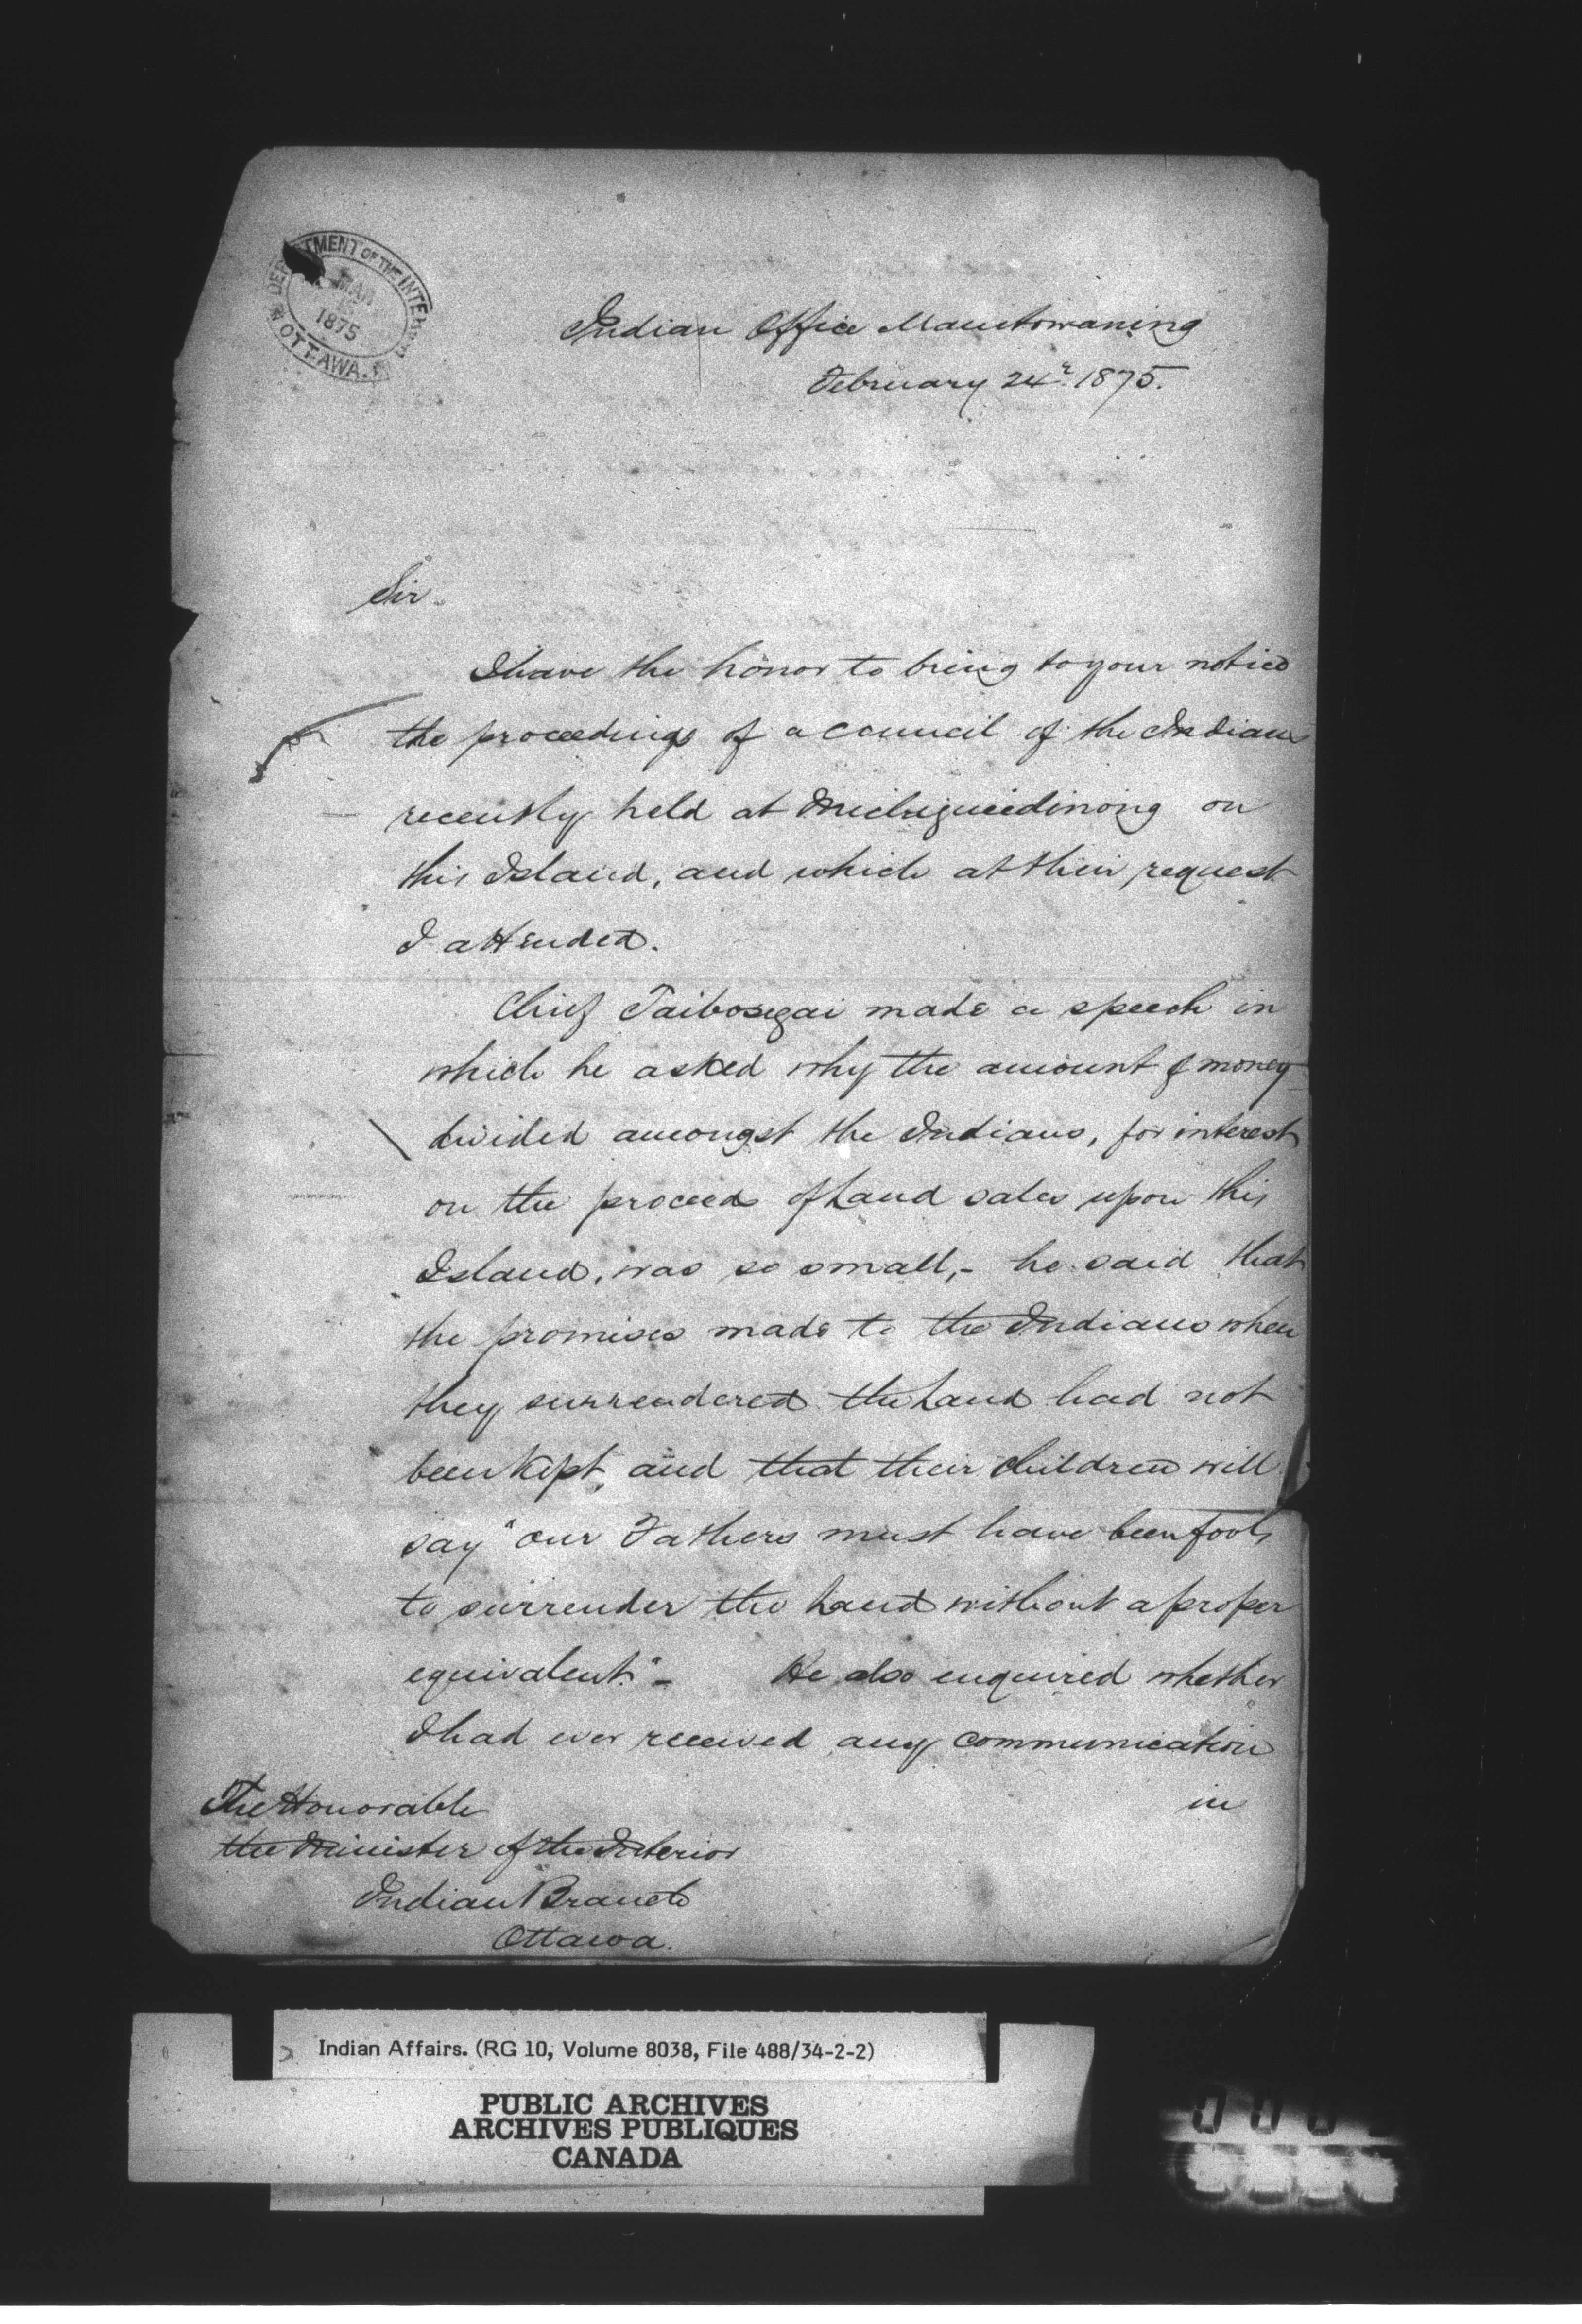 DEPARTMENT OF THE INTERIOR
MAR
1875
OTTAWA.
Indian Office Manitowaning
February 24th 1875.
Sir.
I have the honor to bring to your notice
the proceedings of a council of the Indians
recently held at Michigiwedinong on
this Island, and which at their request
I attended.
Chief Taibosegai made a speech in
which he asked why the amount of money
divided amongst the Indians, for interest
on the proceeds of Land sales upon this
Island, was so small,- he said that
the promises made to the Indians when
they surrendered the Land had not
been kept, and that their children will
say "our Fathers must have been fools
to surrender the Land without a proper
equivalent."- He also enquired whether
I had ever received any communication
in
The Honorable
the Minister of the Interior
Indian Branch
Ottawa.
Indian Affairs. (RG 10, Volume 8038, File 488/34-2-2)
PUBLIC ARCHIVES
ARCHIVES PUBLIQUES
CANADA